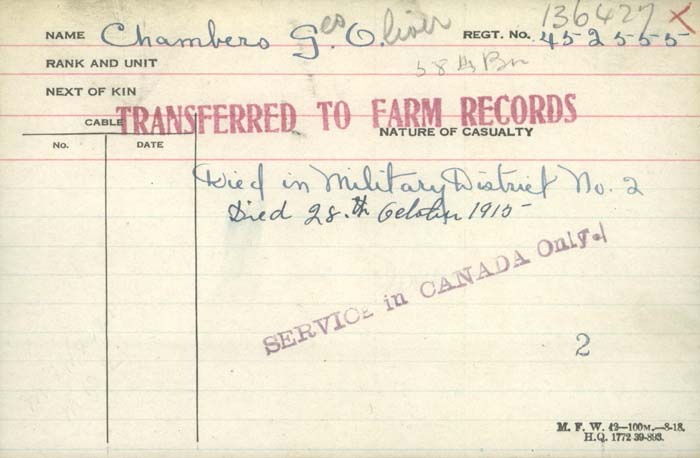 136427 X
NAME Chambers Geo Oliver REGT. No. 452555
RANK AND UNIT 58th Bn
NEXT OF KIN
TRANSFERRED TO FARM RECORDS
CABLE NATURE OF CASUALTY
No. DATE
Died in Military District No. 2
Died 28th October 1915
SERVICE in CANADA Only.
2
M. F. W. 42—100M.—8-18.
H.Q. 1772-39-893.